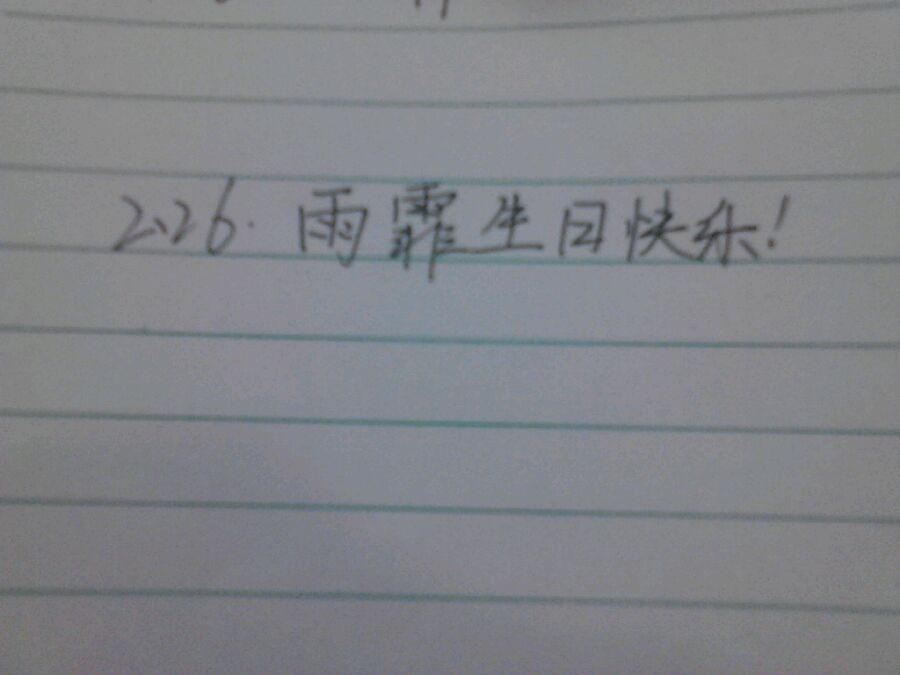 2.26. 雨霏生日快乐!